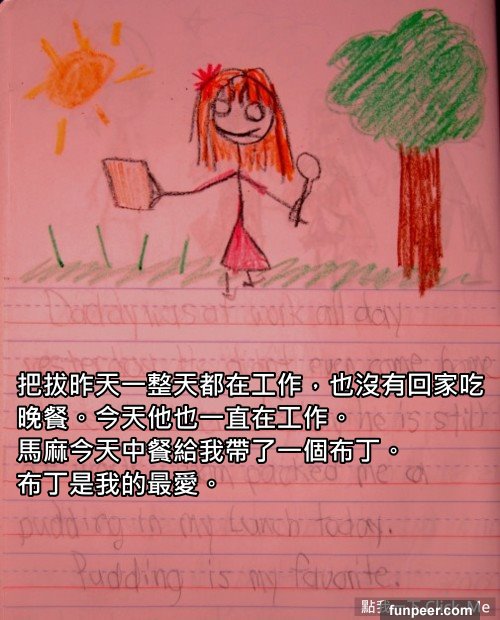 Daddy was at work all day
把拔昨天一整天都在工作，也沒有回家吃
晚餐。今天他也一直在工作。
he is still
馬麻今天中餐給我帶了一個布丁。
packed me a
布丁是我的最愛。
pudding in my lunch today.
Pudding is my favorite.
點我 Me
funpeer.com